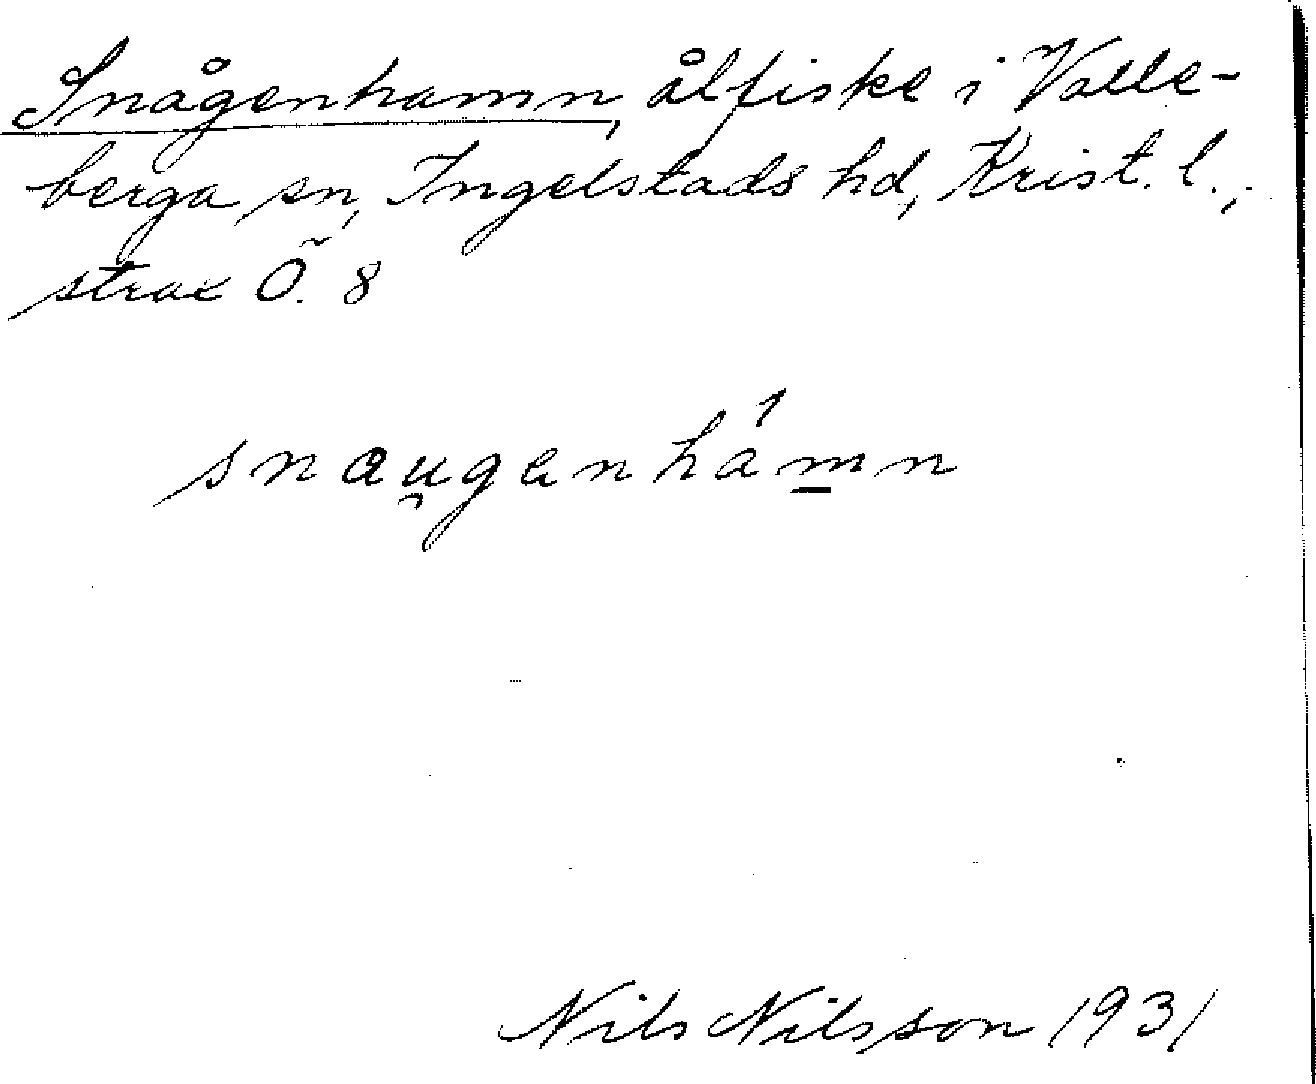 Snågenhamn, ålfiske i Valle-
berga sn, Ingelstads hd, Krist. l.,
strax Ö. 8
snau̯genhámn
Nils Nilsson 1931